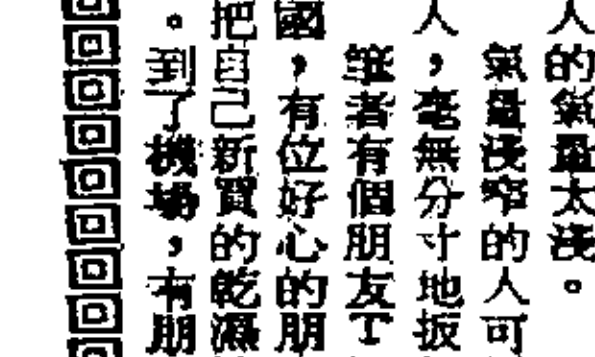 人的氣量太淺。
氣量淺窄的人可
人，毫無分寸地扳
筆者有個朋友丁
國，有位好心的朋
把自己新買的乾濕
。到了機場，有朋